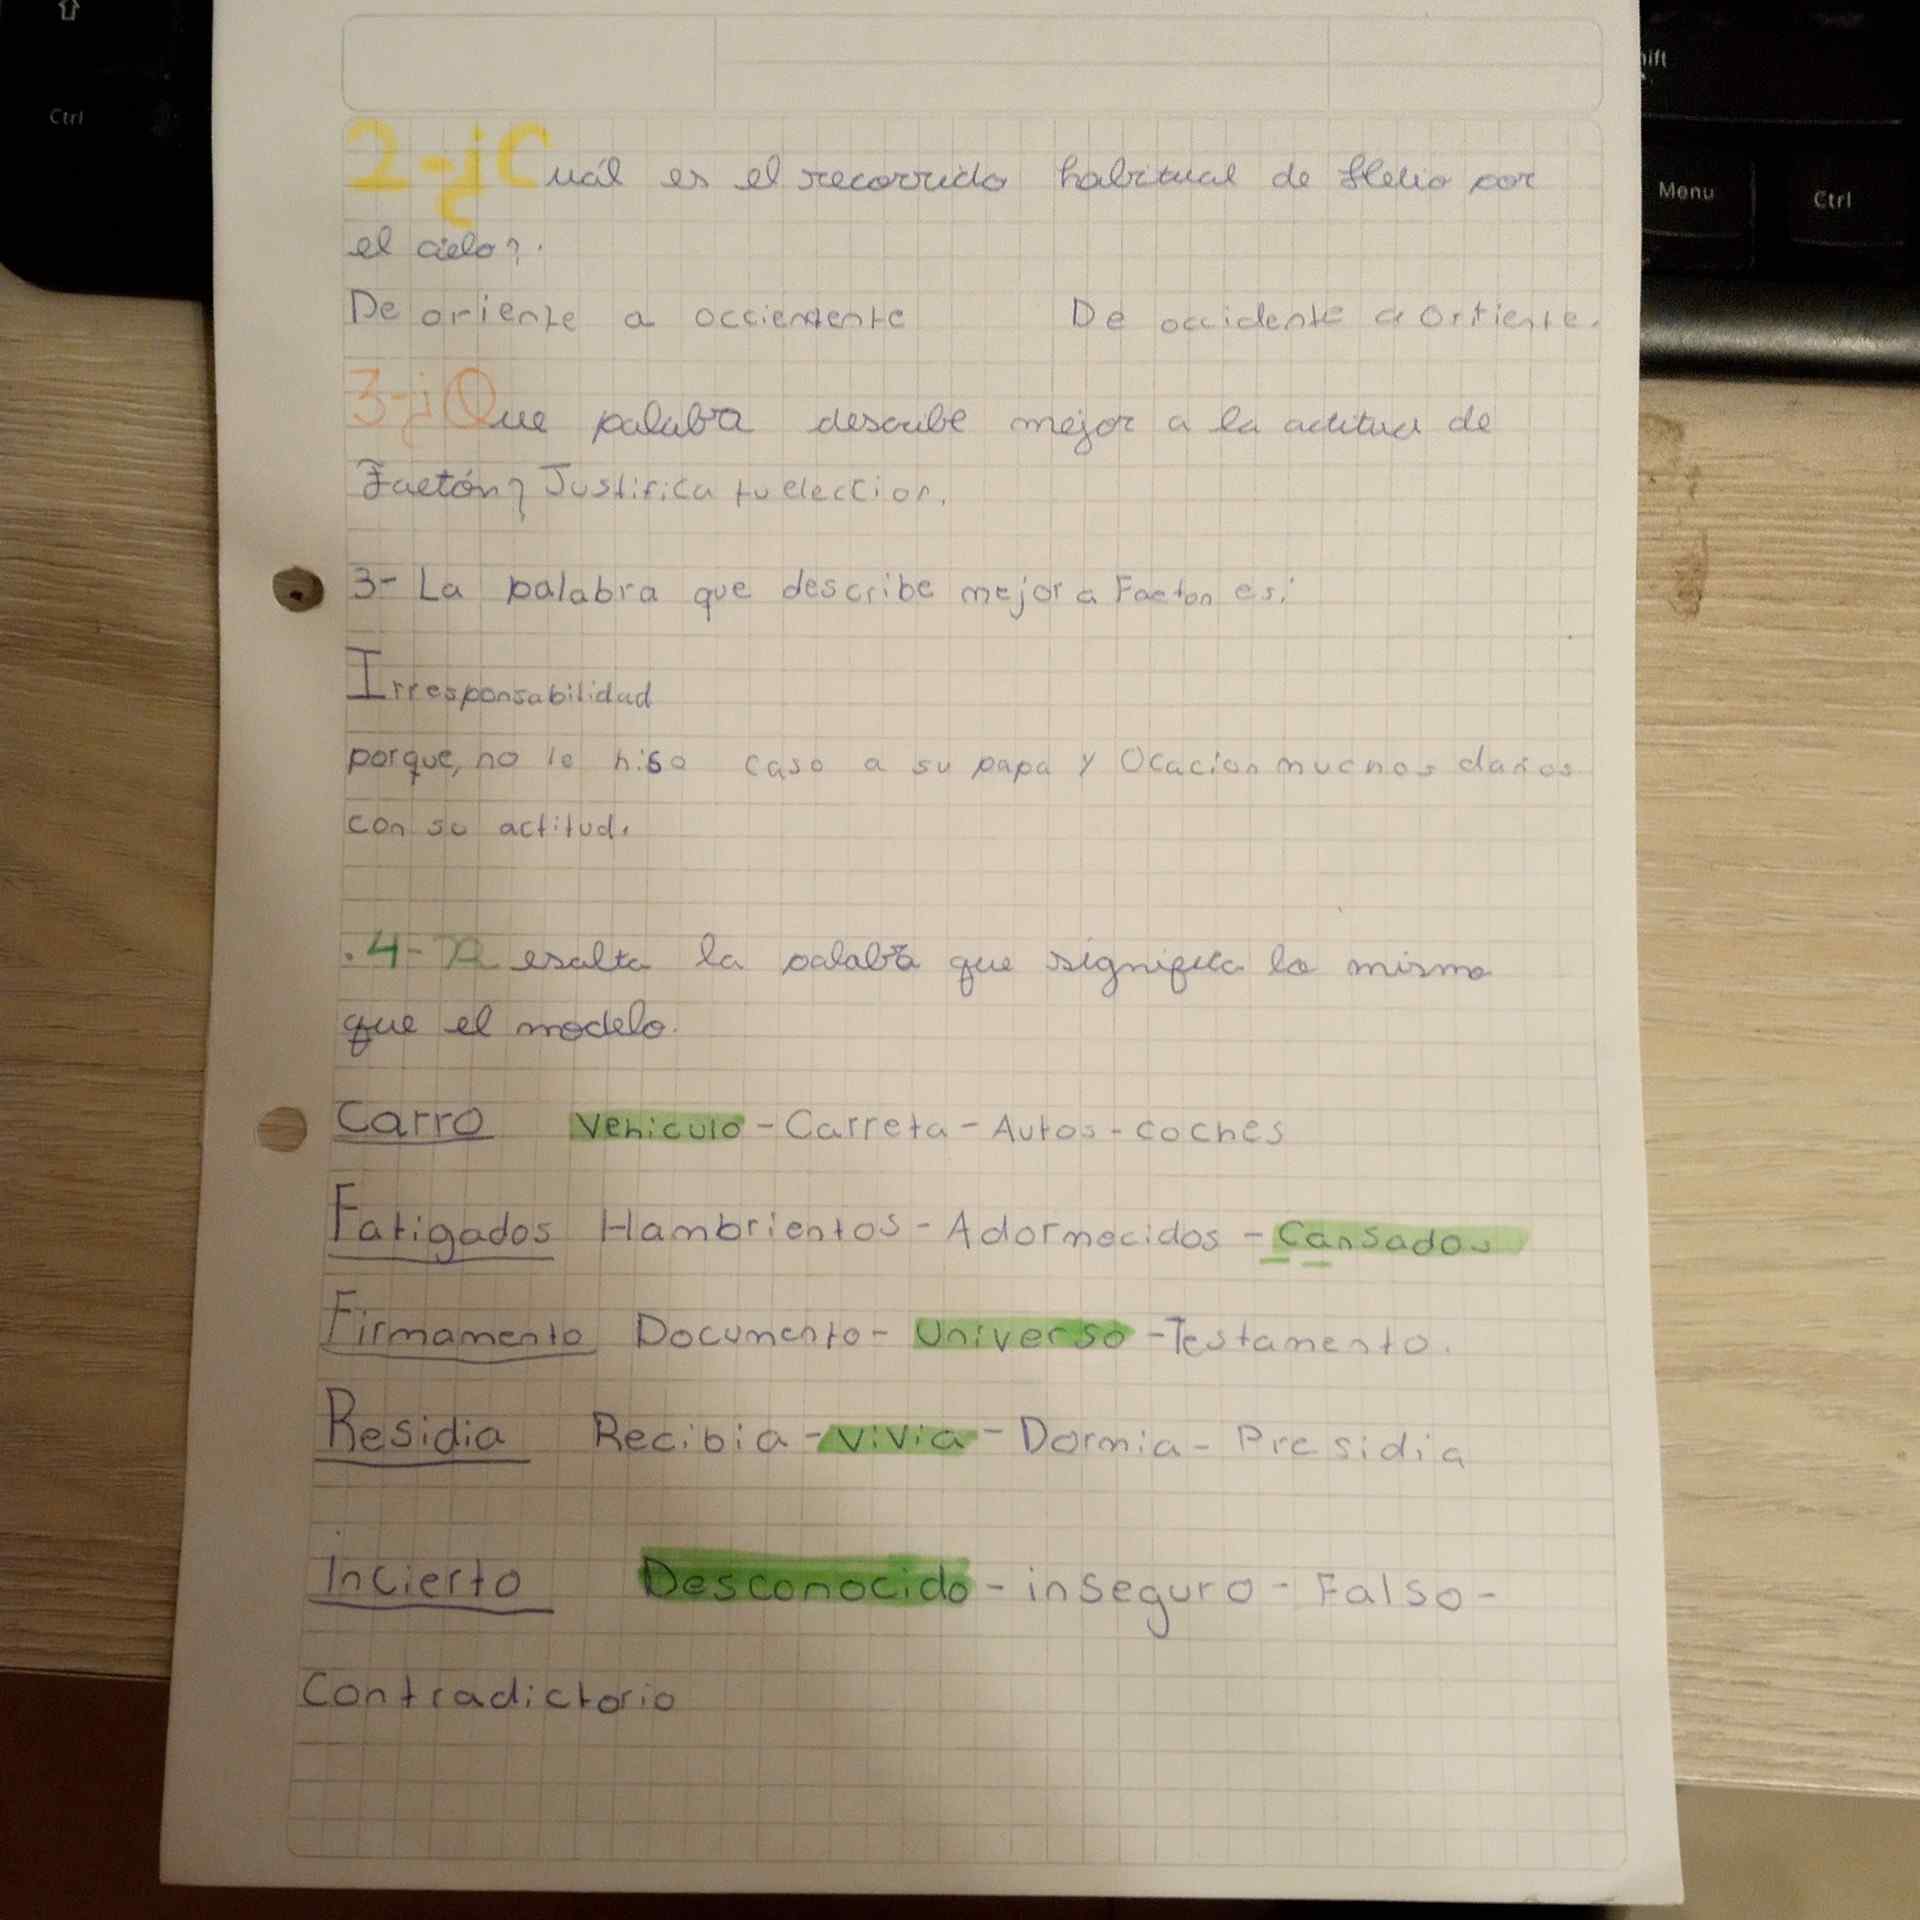 2-¿Cuál es el recorrido habitual de Helio por
el cielo?.
De oriente a occiendente De occidente a ortiente.
3-¿Que palabra describe mejor a la actitud de
Faetón? Justifica tu eleccion.
3- La palabra que describe mejor a Faeton es:
Irresponsabilidad
porque, no le hiso caso a su papa y Ocacion muchos daños
con su actitud.
.4-Resalta la palabra que significa lo mismo
que el modelo.
Carro Vehiculo - Carreta - Autos - coches
Fatigados Hambrientos - Adormecidos - Cansados
Firmamento Documento - Universo - Testamento.
Residia Recibia - vivia - Dormia - Presidia
Incierto Desconocido - inseguro - Falso -
Contradictorio
Ctrl
shift
Menu Ctrl